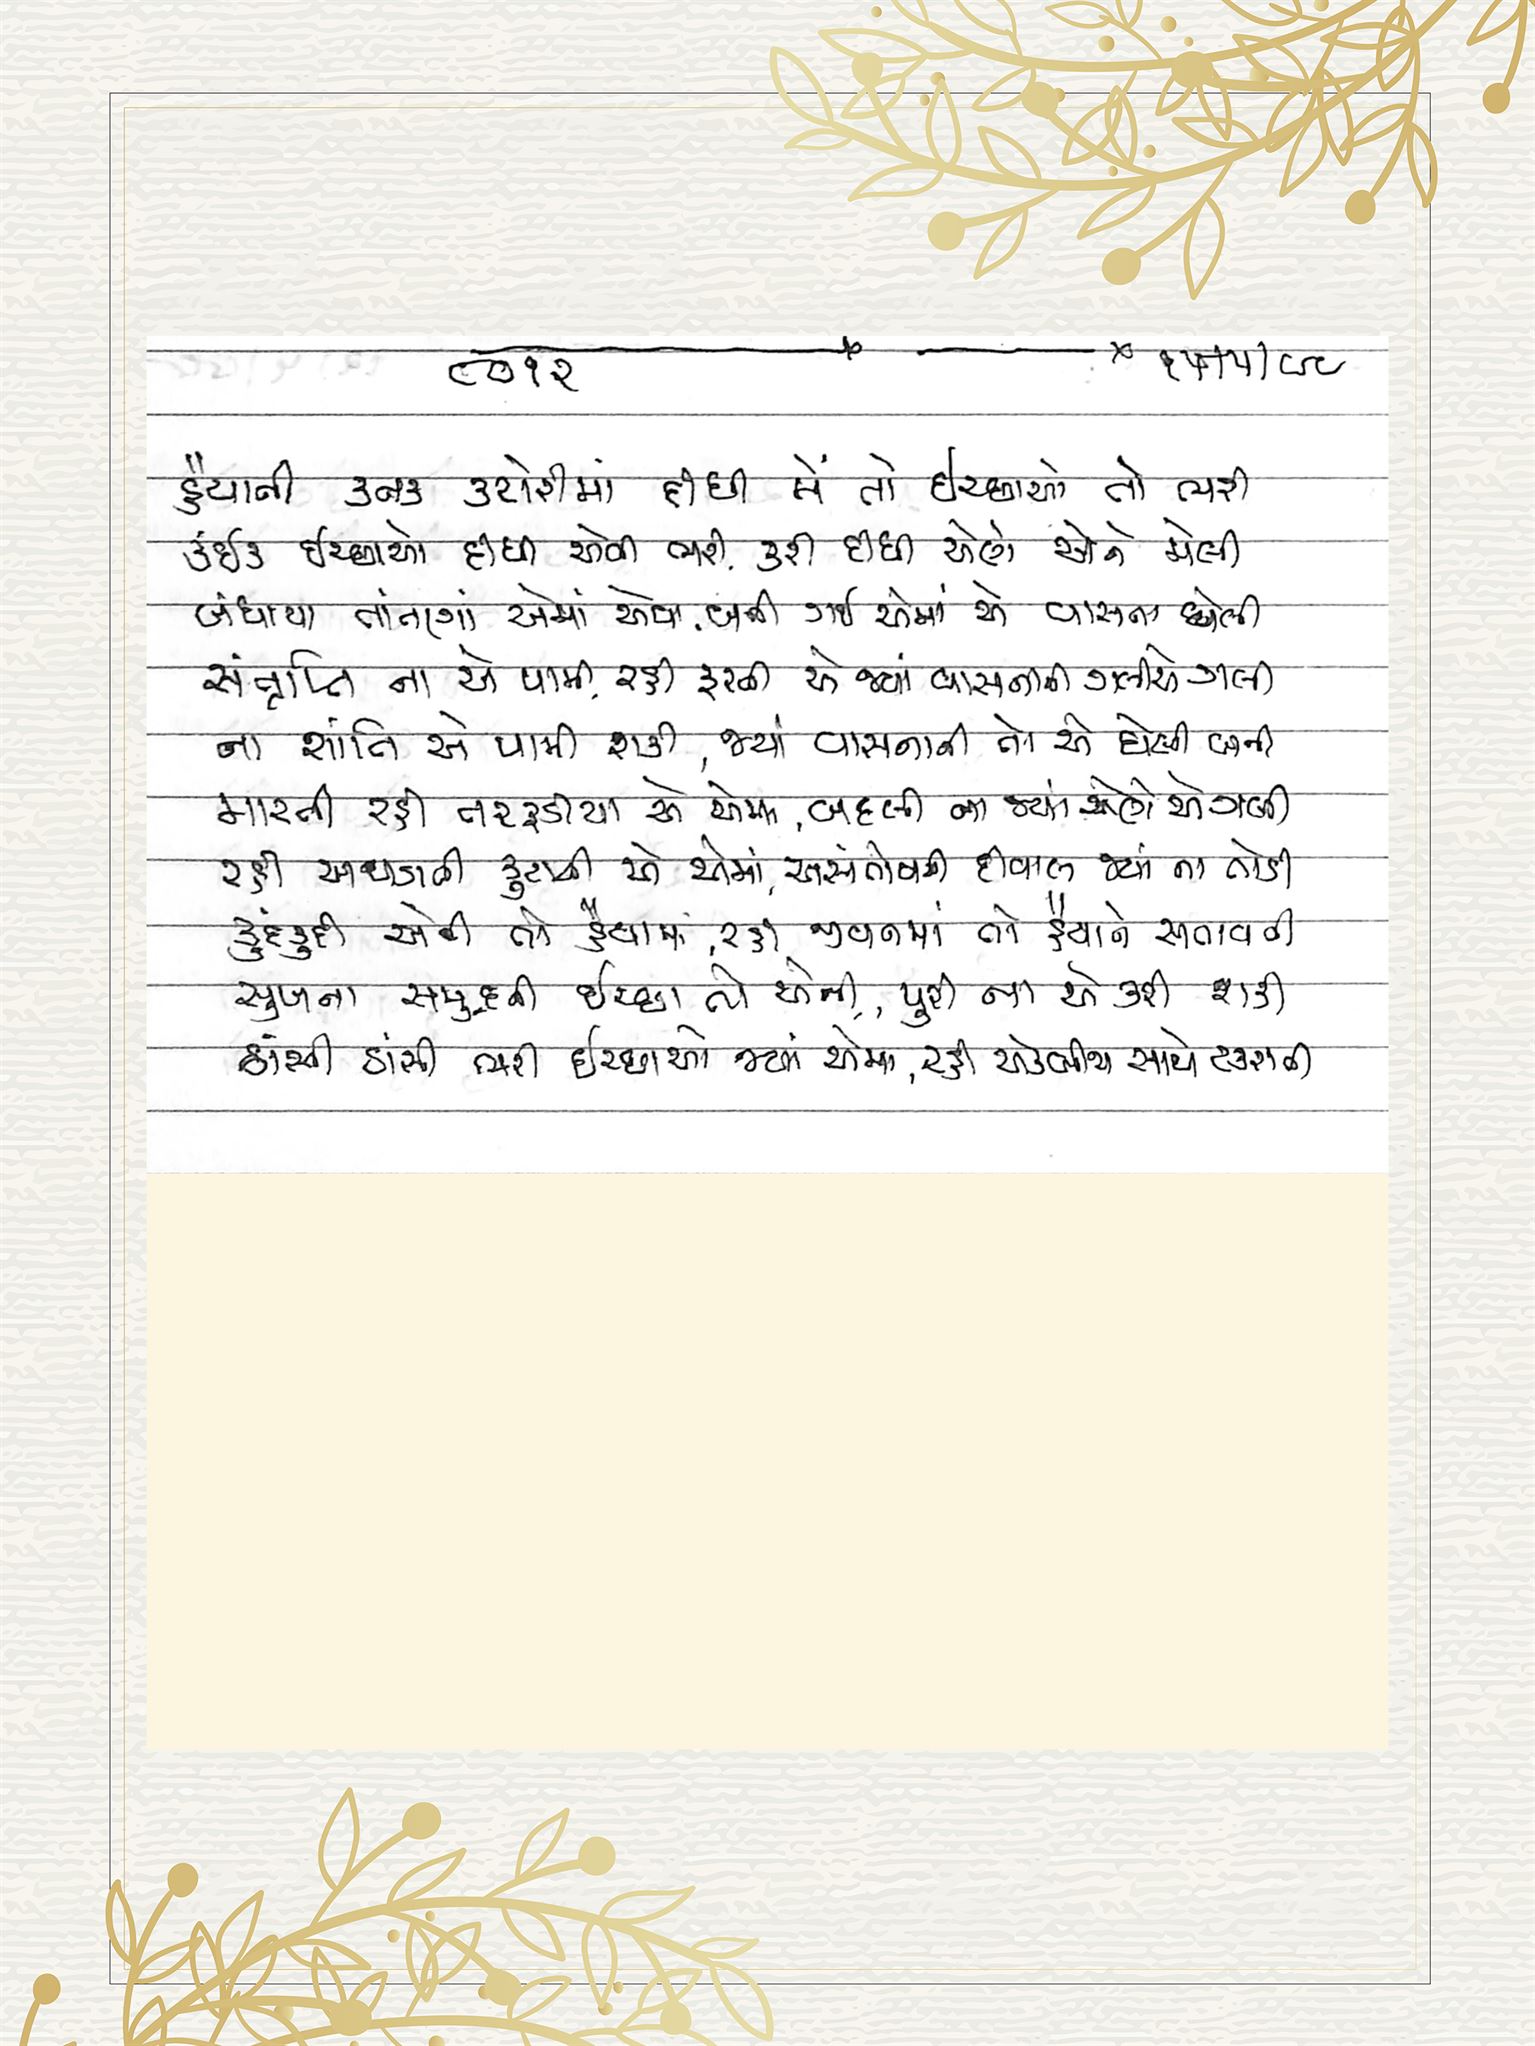 ૯૭૧૨ ૧૫/૫/૮૮
હૈયાની કનક કટોરીમાં દીધી મેં તો ઈચ્છાઓ તો ભરી
કંઈક ઈચ્છાઓ દીધી એવી ભરી, કરી દીધી એણે એને મેલી
બંધાયા તાંતણાં એમાં એવા, બની ગઈ એમાં એ વાસના ઘેલી
સંતૃપ્તિ ના એ પામી, રહી ફરતી એ જ્યાં વાસનાની ગલીએ ગલી
ના શાંતિ એ પામી શકી, જ્યાં વાસનાની તો એ ઘેલી બની
મારતી રહી તરફડીયા એ એમાં, બદલી ના જ્યાં એણે એ ગલી
રહી અથડાતી કુટાતી એ એમાં, અસંતોષની દીવાલ જ્યાં ના તોડી
કુદંકુદી એની તો હૈયામાં, રહી જીવનમાં તો હૈયાને સતાવતી
સુખના સમુદ્રની ઈચ્છા તો એની, પુરી ના એ કરી શકી
ઠાંસી ઠાંસી ભરી ઈચ્છાઓ જ્યાં એમાં, રહી એકબીજા સાથે ટકરાતી